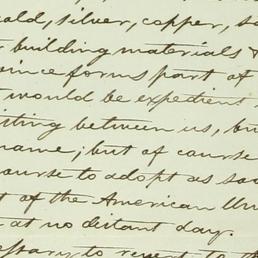 silver, copper,
building materials &
since forms part of
would be expedient
between us, bu
name; but of course
course to adopt as soo
of the American Un
at no distant day.
to revert to th